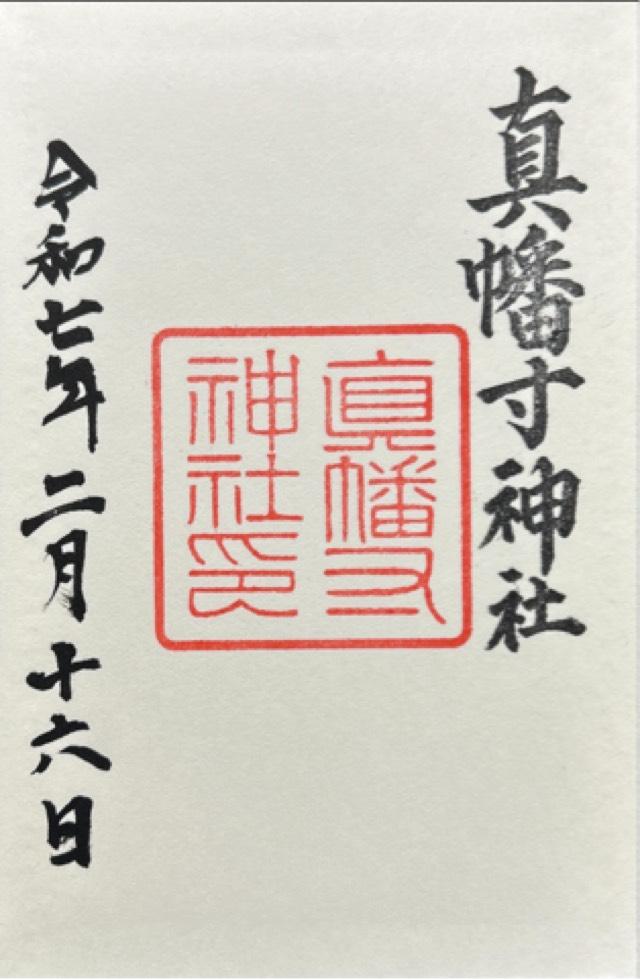 真幡寸神社
眞幡寸
神社印
令和七年二月十六日